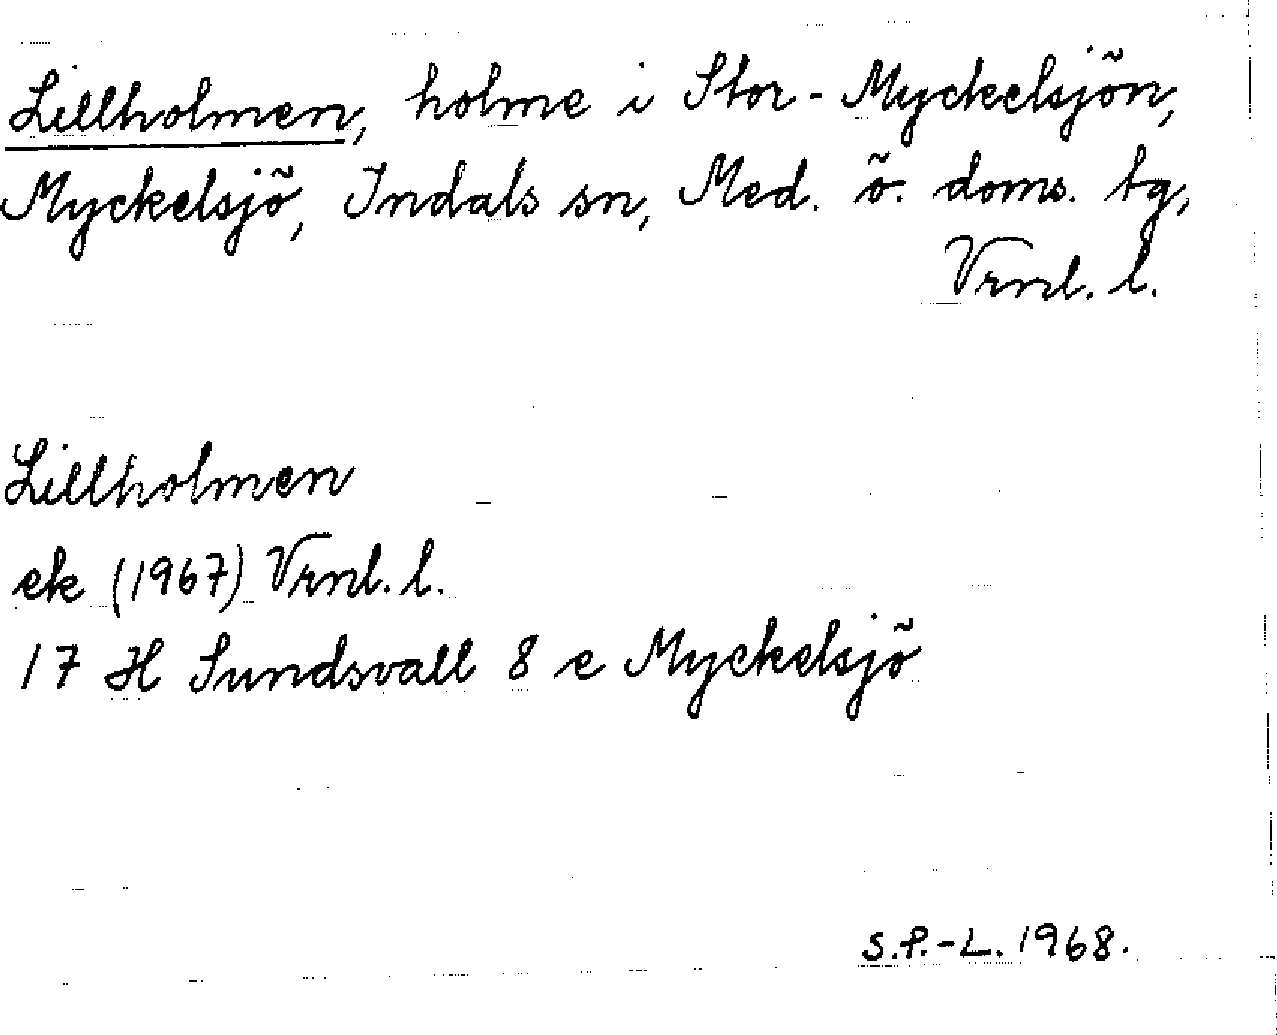 Lillholmen, holme i Stor-Myckelsjön,
Myckelsjö, Indals sn, Med. ö. doms. tg,
Vrnl. l.
Lillholmen
ek (1967) Vrnl. l.
17 H Sundsvall 8 e Myckelsjö
S.P.-L. 1968.